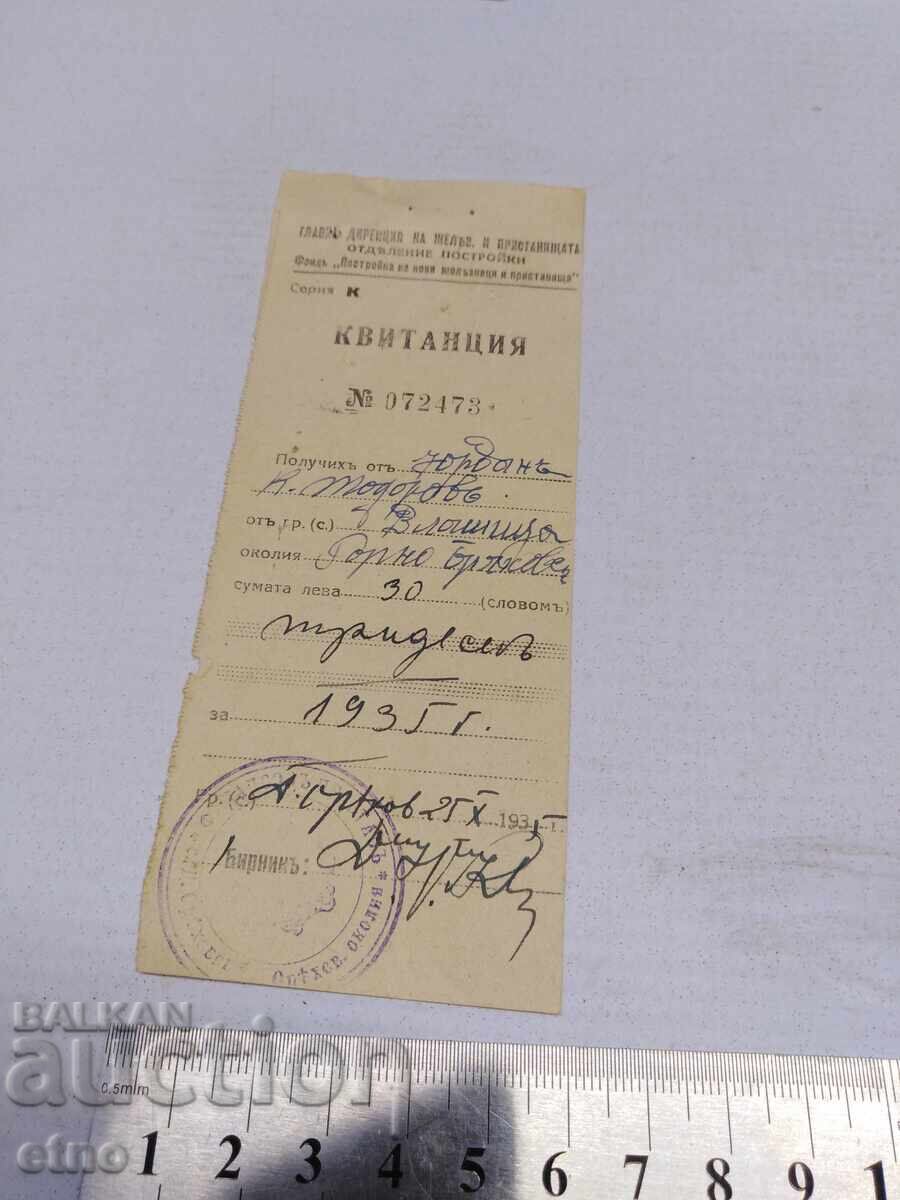 ГЛАВНА ДИРЕКЦИЯ НА ЖЕЛѢЗ. И ПРИСТАНИЩАТА
ОТДѢЛЕНИЕ ПОСТРОЙКИ
Фондъ „Постройка на нови желѣзници и пристанища"
Серия К
КВИТАНЦИЯ
№ 072473
Получихъ отъ Йорданъ
К. Тодоровъ
отъ гр. (с.) Влашица
околия Горно
сумата лева 30 (словомъ)
тридесетъ
за 1935 г.
гр. (с.) 25 X 1935 г.
Бирникъ:
Орѣхов. околия
BALKAN
auction
etno
0.5mm
1 2 3 4 5 6 7 8 9 1